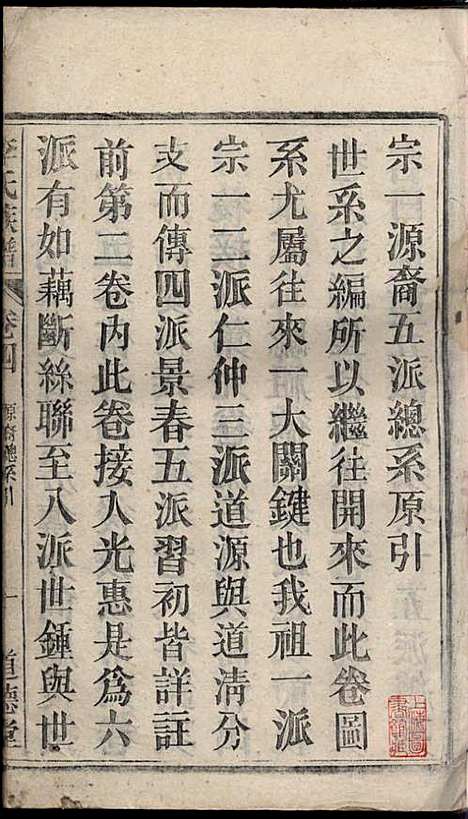 宗一源裔五派總系原引
世系之編所以繼往開來而此卷圖
系尤屬往來一大關鍵也我祖一派
宗一二派仁仲三派道源與道清分
支而傳四派景春五派習初皆詳註
前第二卷內此卷接入光惠是為六
派有如藕斷絲聯至八派世鍾與世
氏族譜
卷四
原裔總系引
一
道德堂